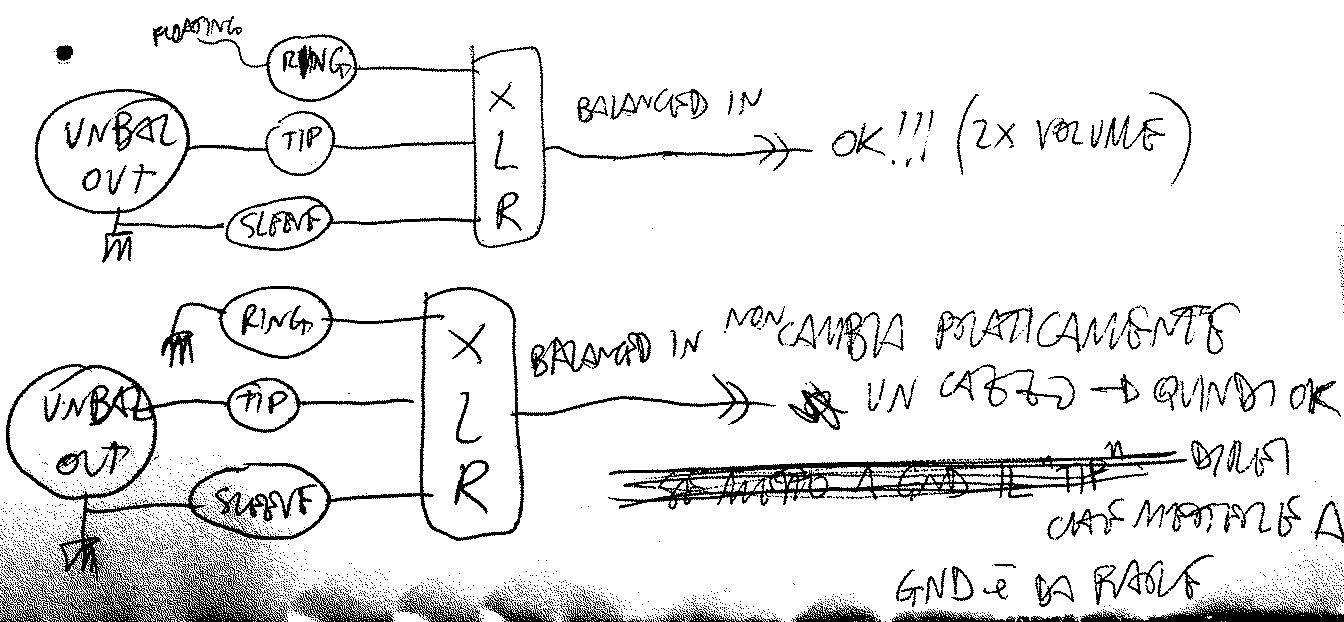 FLOATING
RING
UNBAL
OUT
TIP
SLEEVE
X
L
R
BALANCED IN
OK!!! (2X VOLUME)
RING
UNBAL
OUT
TIP
SLEEVE
X
L
R
BALANCED IN
NON CAMBIA PRATICAMENTE
UN CAZZO → QUINDI OK
SE METTO A GND IL "TIP" DIREI
CHE METTERE A
GND È DA